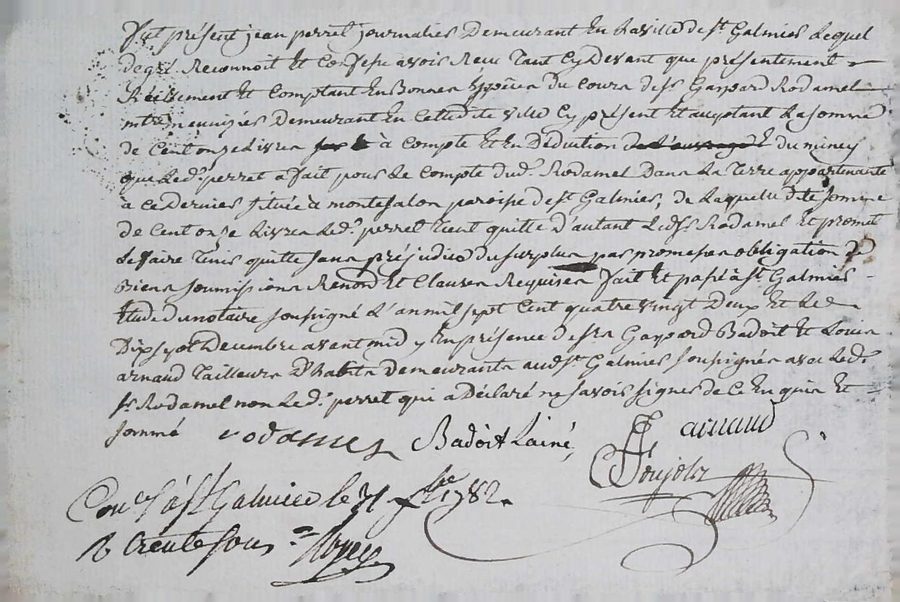 fut présent jean perret journalier Demeurant En la ville de st Galmier Lequel
degré Reconnoit Et Confesse avoir Recu Tant Cy Devant que présentement
Réellement Et Comptant En Bonnes Espèces du Cours de sr Gaspard Rodamel
mtre menuizier Demeurant En Cettedite ville Cy présent Et acceptant La somme
de Cent onze Livres à compte Et En Déduction du miney
que Led. perret a fait pour Le Compte dud. Rodamel Dans La Terre appartenante
à ce Dernier située à montsalon paroisse de st Galmier, de Laquelle dte somme
de Cent onze Livres Led. perret Tient quitte d'autant Ledt sr Rodamel Et promet
Le faire Tenir quitte sans préjudice du surplus par promesses obligation de
Biens soumissions Renond Et Clauses Requises fait Et passé à st Galmier
Etude du notaire soussigné L'an mil sept Cent quatre vingt Deux Et Le
Dix sept Decembre avant midy En présence de srs Gaspard Badoit Et Louis
arnaud Tailleurs D'habits Demeurants audt st Galmier soussignés avec Ledt
sr Rodamel non Led. perret qui a Déclaré ne savoir signer de ce Enquis Et
sommé rodamel Badoit Lainé, arnaud
Poujolz
Con.lé à st Galmier le 31 xbre 1782.
R trente sous